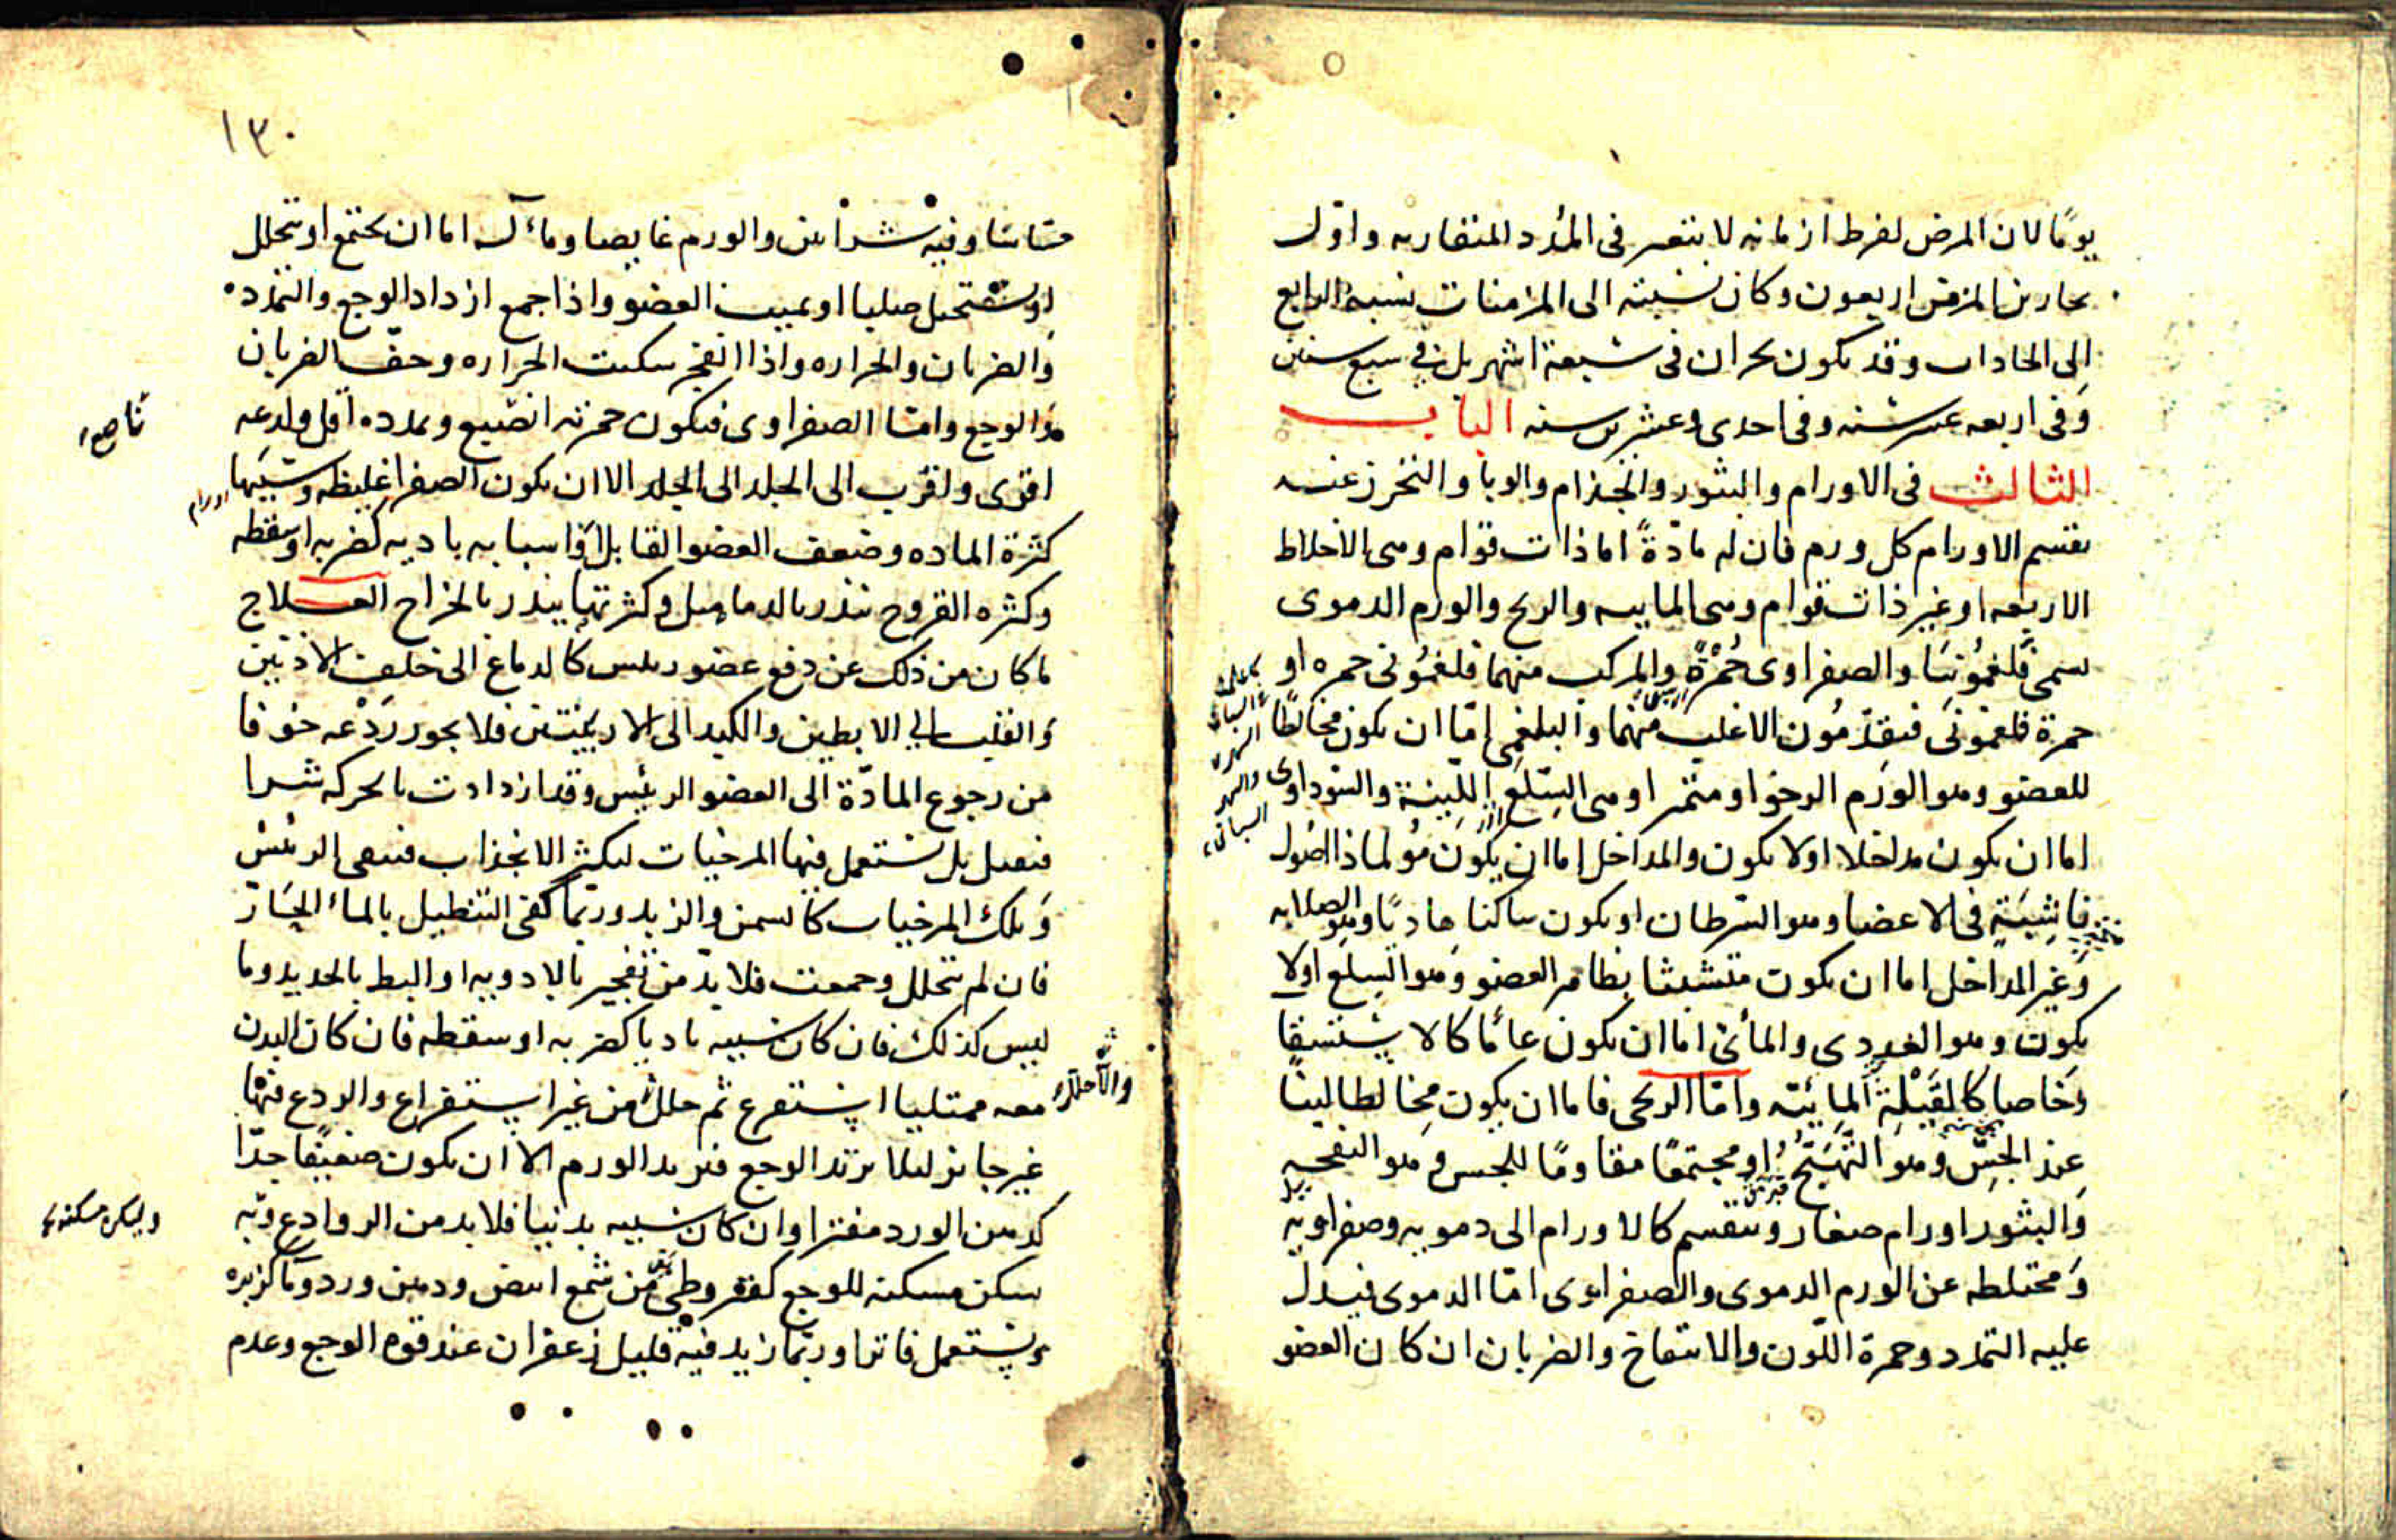 يومًا لان المرض لفرط ازمانه لا يتغير فى المُدد المتقاربه واوّل
بحارين المزمن اربعون وكان نسبته الى المزمنات نسبة الرابع
الى الحادات وقد يكون بحران فى سبعة اشهر بل فى سبع سنين
وفى اربعه عشر سنه وفى احدى وعشرين سنه الباب
الثالث فى الاورام والبثور والجذام والوبا والتحرز عنه
تقسيم الاورام كل ورم فان له مادّةً اما ذات قوام وهى الاخلاط
الاربعه او غير ذات قوام وهى المائيه والريح والورم الدموى
يسمى فلغمُونيَا والصفراوى حُمْرَةً والمركب منهما فلغمُونى حمره او
حمرة فلغمونى فيقدّمُون الاغلب منهما والبلغمى امّا ان يكون مخالطًا
للعضو وهو الورم الرخو او متميزا وهى السِّلَع اللَّيِّنَة والسّوداوى
اما ان يكون مداخلا او لا يكون والمداخل اما ان يكون مؤلما ذا اصُول
ناشِبَةٍ فى الاعضا وهو السّرطان او يكون ساكنا هاديًا وهو الصلابه
وغير المداخل اما ان يكون متشبثا بظاهر العضو وهو السِّلع او لا
يكون وهو الغددى والمائى اما ان يكون عامًّا كالاستسقا
وخاصا كالقَيْلةِ المائيّه وامّا الريحى فاما ان يكون مخالطا لينًا
عند الجسّ وهو التَّهَيّج او مجتمعًا مقاومًا للجس وهو النفخه
والبثور اورام صغار وتنقسم كالاورام الى دمويه وصفراويه
ومختلطه عن الورم الدموى والصفراوى امّا الدموى فيدل
عليه التمدد وحمرة اللّون والانتفاخ والضربان ان كان العضو
١٣٠
حسّاسًا وفيه شرايين والورم غايصا ومآله اما ان يجتمع او يتحلل
او يستحيل صلبا او يميت العضو واذا جمع ازداد الوجع والتمدد
والضربان والحراره واذا انفجر سكنت الحراره وخفّ الضربان
والوجع وامّا الصفراوى فيكون حمرته انصع وتمدده اقل ولذعه
ناصع
اقوى واقرب الى الجلد الى الجلد الا ان يكون الصفرا غليظه وسببها
كثرة الماده وضعف العضو القابل او اسبابه باديه كضربه او سقطه
وكثره القروح تنذر بالدماميل وكثرتها ينذر بالخراج العلاج
ما كان من ذلك عن دفع عضو رئيس كالدماغ الى خلف الاذنين
والقلب الى الابطين والكبد الى الاربيتين فلا يجوز ردْعه خوفا
من رجوع المادّة الى العضو الرئيس وقد ازدادت بالحركه شرا
فيقتل بل تستعمل فيها المرخيات ليكثر الانجذاب فينقى الرئيس
وتلك المرخيات كالسمن والزبد وربّما كفى التنطيل بالماء الحَارّ
فان لم يتحلل وجمعت فلا بدّ من تفجير بالادويه او البط بالحديد وما
ليس كذلك فان كان سببه باديا كضربه او سقطه فان كان البدن
معه ممتليا استفرغ ثم حلل من غير استفراغ والردع فيها
غير جايز ليلا يزيد الوجع فيزيد الورم الا ان يكون ضعيفا جدّا
كدهن الورد مفترا وان كان سببه بدنيا فلا بد من الروادع وبه
وليكن مسكنه
يسكن مسكنه للوجع كقيروطى من شمع ابيض ودهن ورد وما كزبره
ويستعمل فاترا وربّما زيد فيه قليل زعفران عند قوه الوجع وعدم